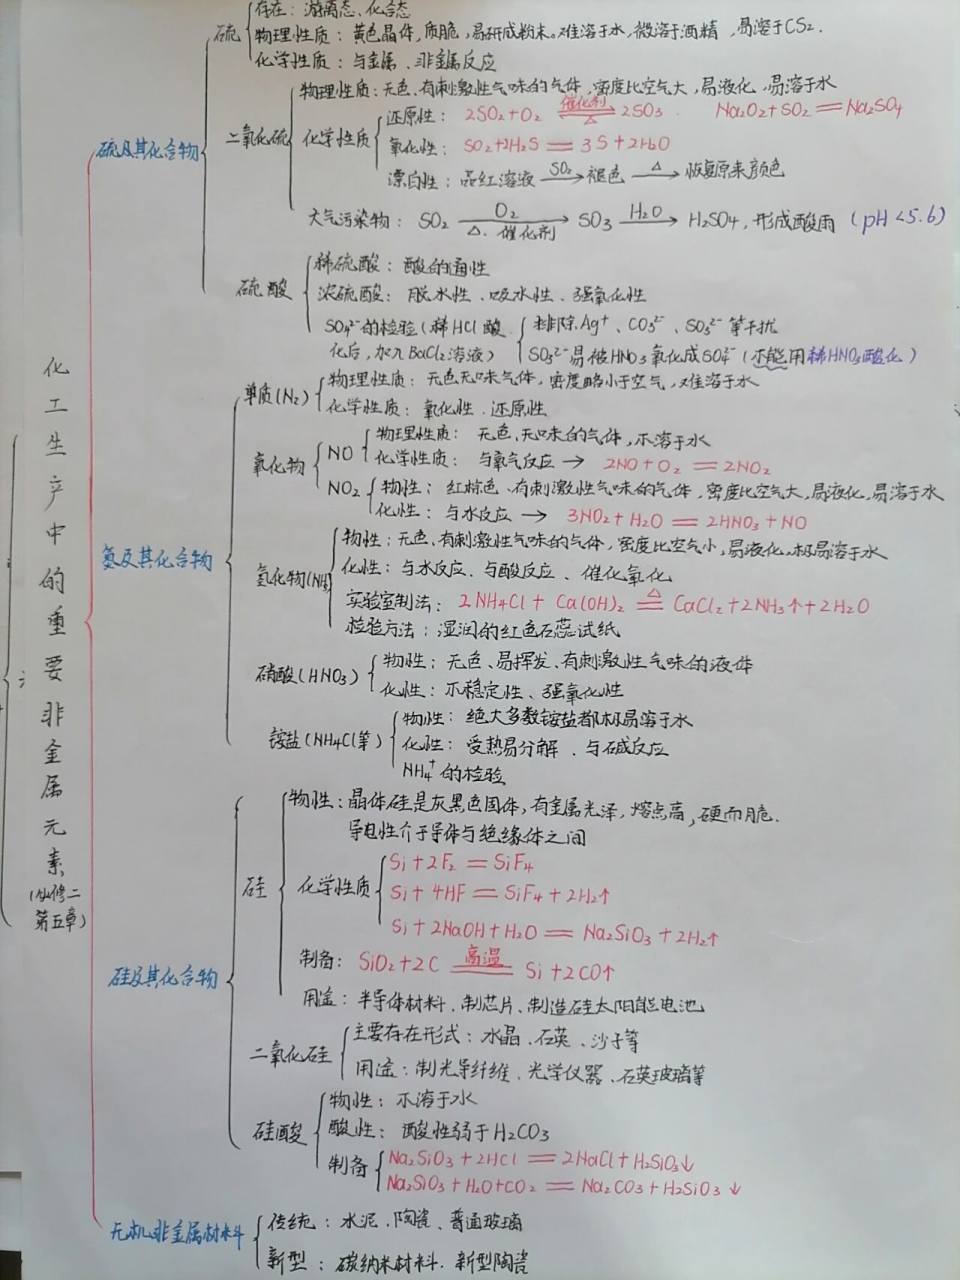 化工生产中的重要非金属元素
(必修二
第五章)
硫及其化合物
硫
存在：游离态、化合态
物理性质：黄色晶体，质脆，易研成粉末。难溶于水，微溶于酒精，易溶于CS2.
化学性质：与金属、非金属反应
二氧化硫
物理性质：无色、有刺激性气味的气体，密度比空气大，易液化，易溶于水
化学性质
还原性：2SO2+O2 催化剂 △ 2SO3 Na2O2+SO2=Na2SO4
氧化性：SO2+2H2S=3S+2H2O
漂白性：品红溶液 SO2→ 褪色 △→ 恢复原来颜色
大气污染物：SO2 O2 △、催化剂→ SO3 H2O→ H2SO4，形成酸雨 (pH<5.6)
硫酸
稀硫酸：酸的通性
浓硫酸：脱水性、吸水性、强氧化性
SO4²⁻的检验(稀HCl酸
化后，加入BaCl2溶液)
排除Ag⁺、CO3²⁻、SO3²⁻等干扰
SO3²⁻易被HNO3氧化成SO4²⁻(不能用稀HNO3酸化)
氮及其化合物
单质(N2)
物理性质：无色无味气体，密度略小于空气，难溶于水
化学性质：氧化性、还原性
氧化物
NO
物理性质：无色、无味的气体，不溶于水
化学性质：与氧气反应→ 2NO+O2=2NO2
NO2
物性：红棕色、有刺激性气味的气体，密度比空气大，易液化，易溶于水
化性：与水反应→ 3NO2+H2O=2HNO3+NO
氢化物(NH3
物性：无色、有刺激性气味的气体，密度比空气小，易液化，极易溶于水
化性：与水反应、与酸反应、催化氧化
实验室制法：2NH4Cl+Ca(OH)2 △= CaCl2+2NH3↑+2H2O
检验方法：湿润的红色石蕊试纸
硝酸(HNO3)
物性：无色、易挥发、有刺激性气味的液体
化性：不稳定性、强氧化性
铵盐(NH4Cl等)
物性：绝大多数铵盐都极易溶于水
化性：受热易分解、与碱反应
NH4⁺的检验
硅及其化合物
硅
物性：晶体硅是灰黑色固体，有金属光泽，熔点高，硬而脆.
导电性介于导体与绝缘体之间
化学性质
Si+2F2=SiF4
Si+4HF=SiF4+2H2↑
Si+2NaOH+H2O=Na2SiO3+2H2↑
制备：SiO2+2C 高温= Si+2CO↑
用途：半导体材料、制芯片、制造硅太阳能电池
二氧化硅
主要存在形式：水晶、石英、沙子等
用途：制光导纤维、光学仪器、石英玻璃等
硅酸
物性：不溶于水
酸性：酸性弱于H2CO3
制备
Na2SiO3+2HCl=2NaCl+H2SiO3↓
Na2SiO3+H2O+CO2=Na2CO3+H2SiO3↓
无机非金属材料
传统：水泥、陶瓷、普通玻璃
新型：碳纳米材料、新型陶瓷